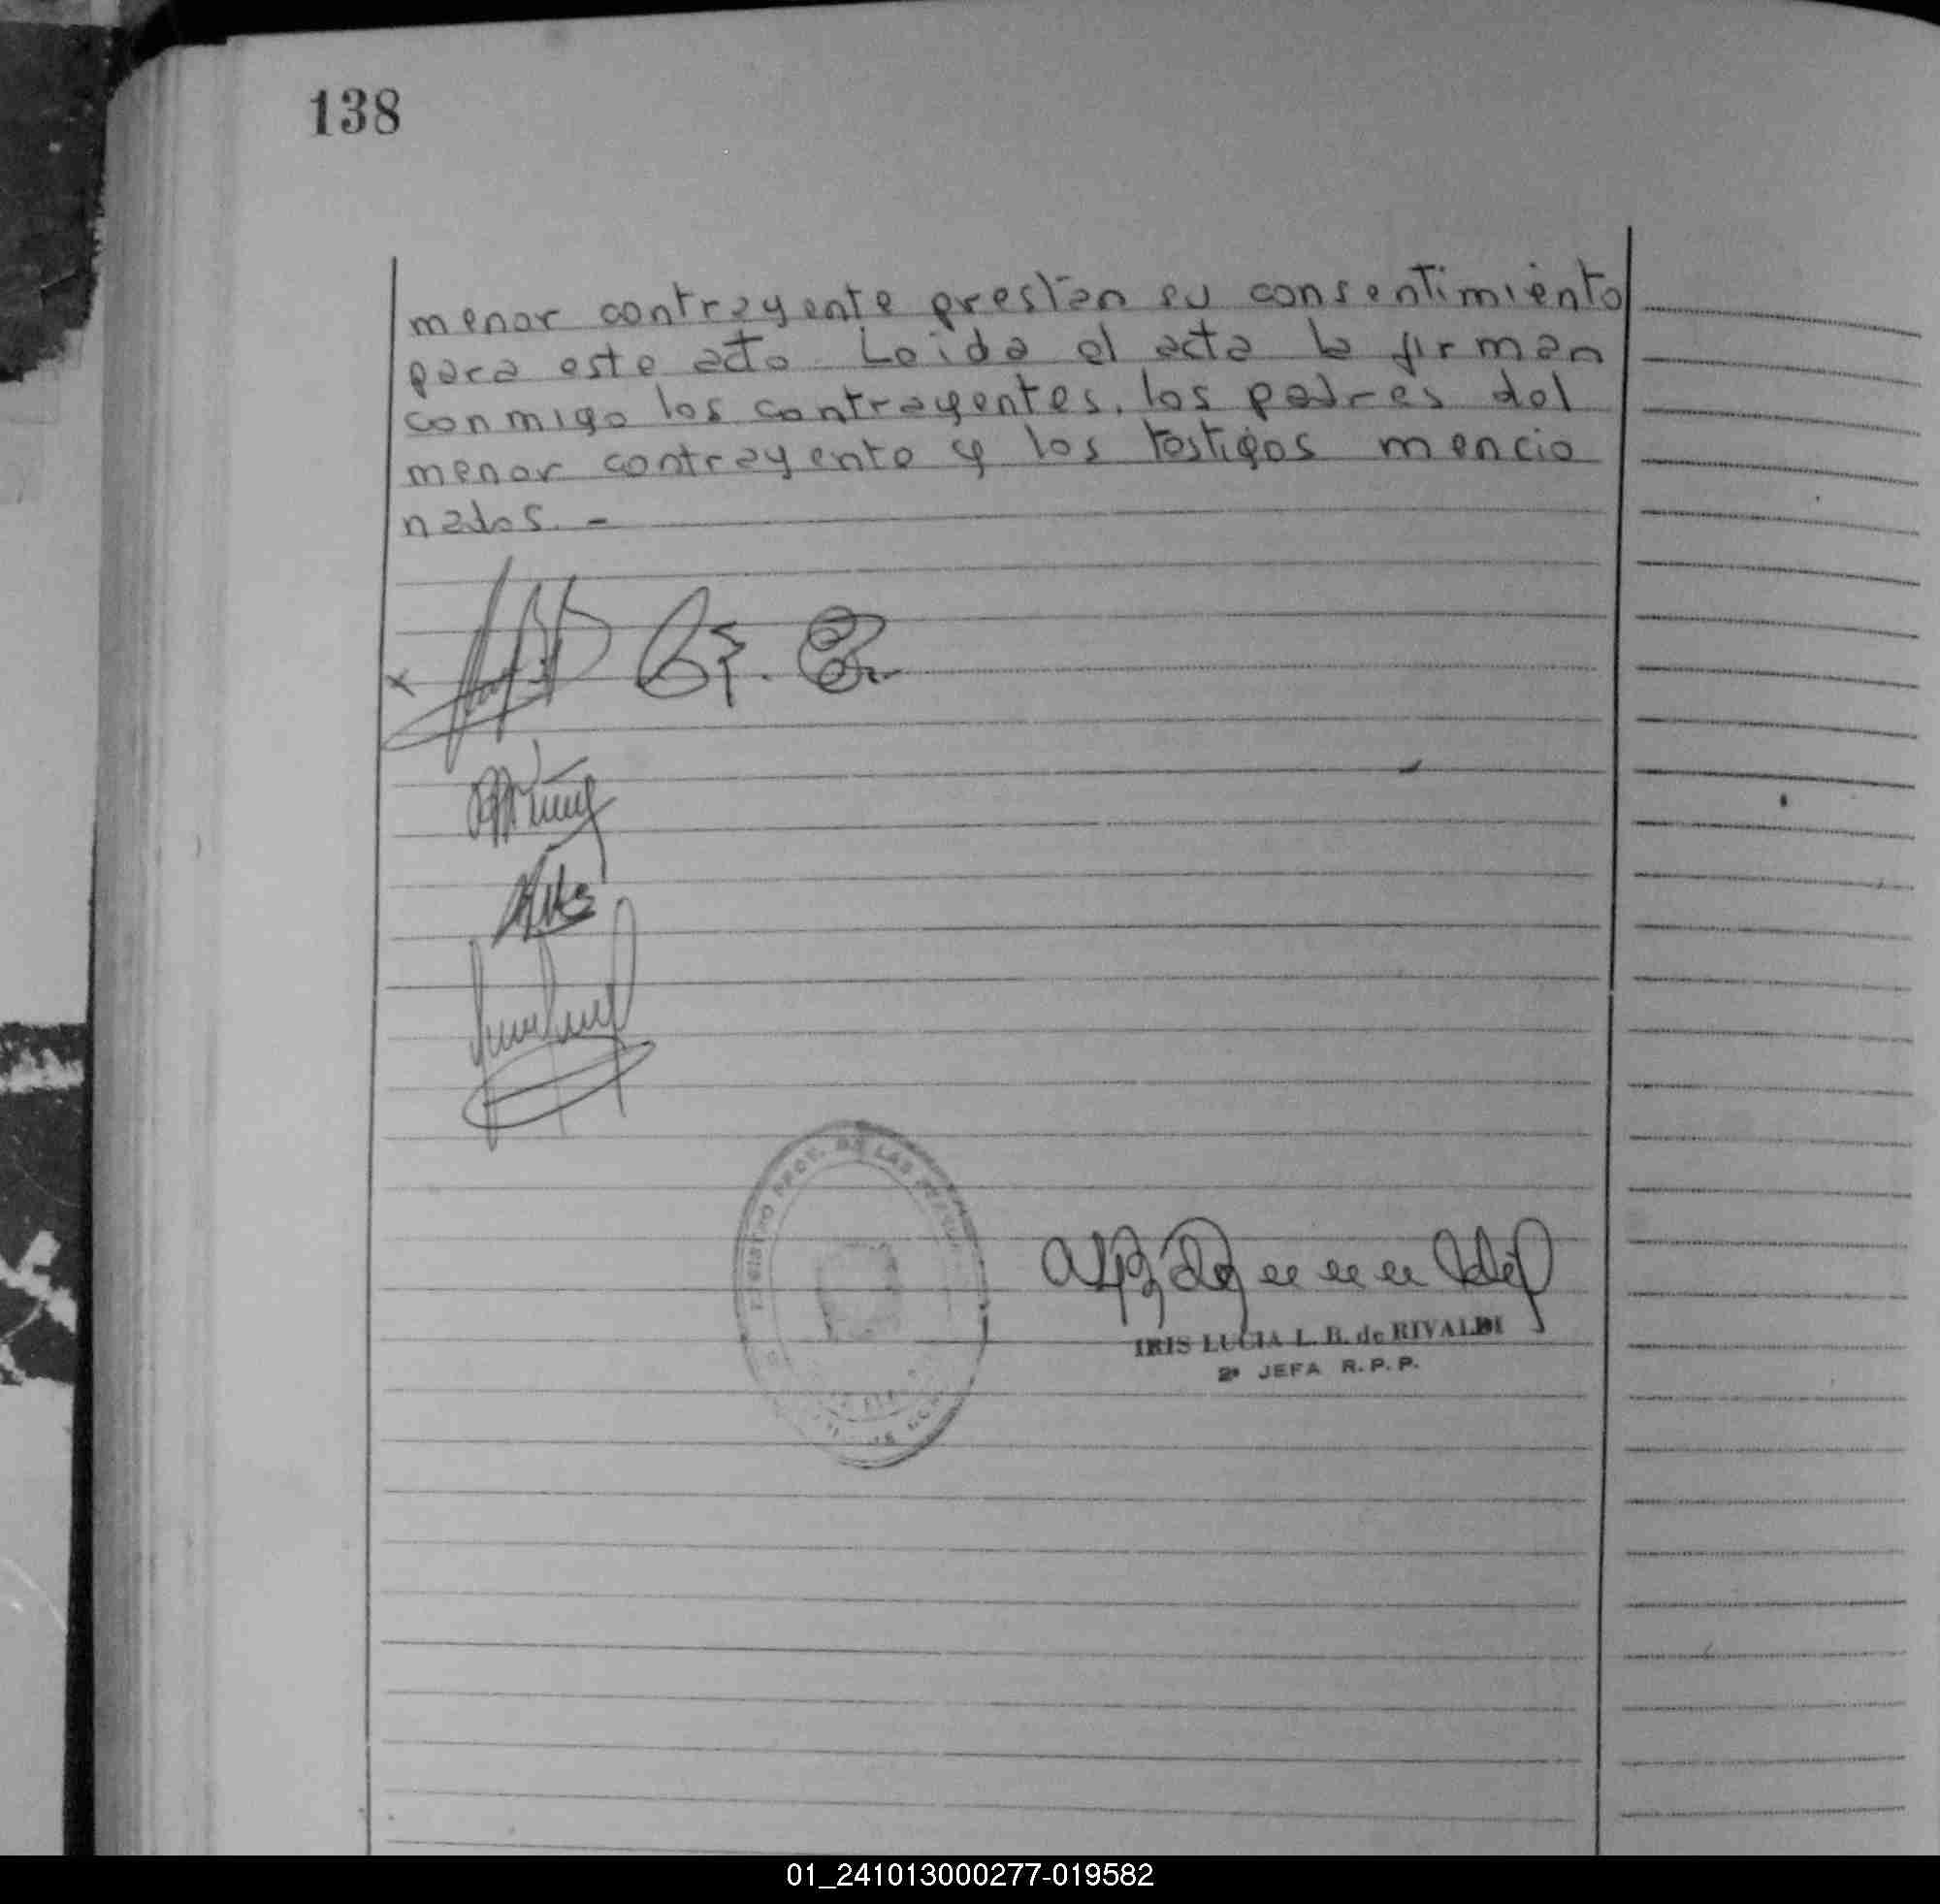 138
menor contrayente prestan su consentimiento
para este acto. Leida el acta la firman
conmigo los contrayentes, los padres del
menor contrayente y los testigos mencio
nados. -
x
REGISTRO PROV. DE LAS PERSONAS
IRIS LUCIA L. B. de RIVALDI
2ª JEFA R.P.P.
01_241013000277-019582